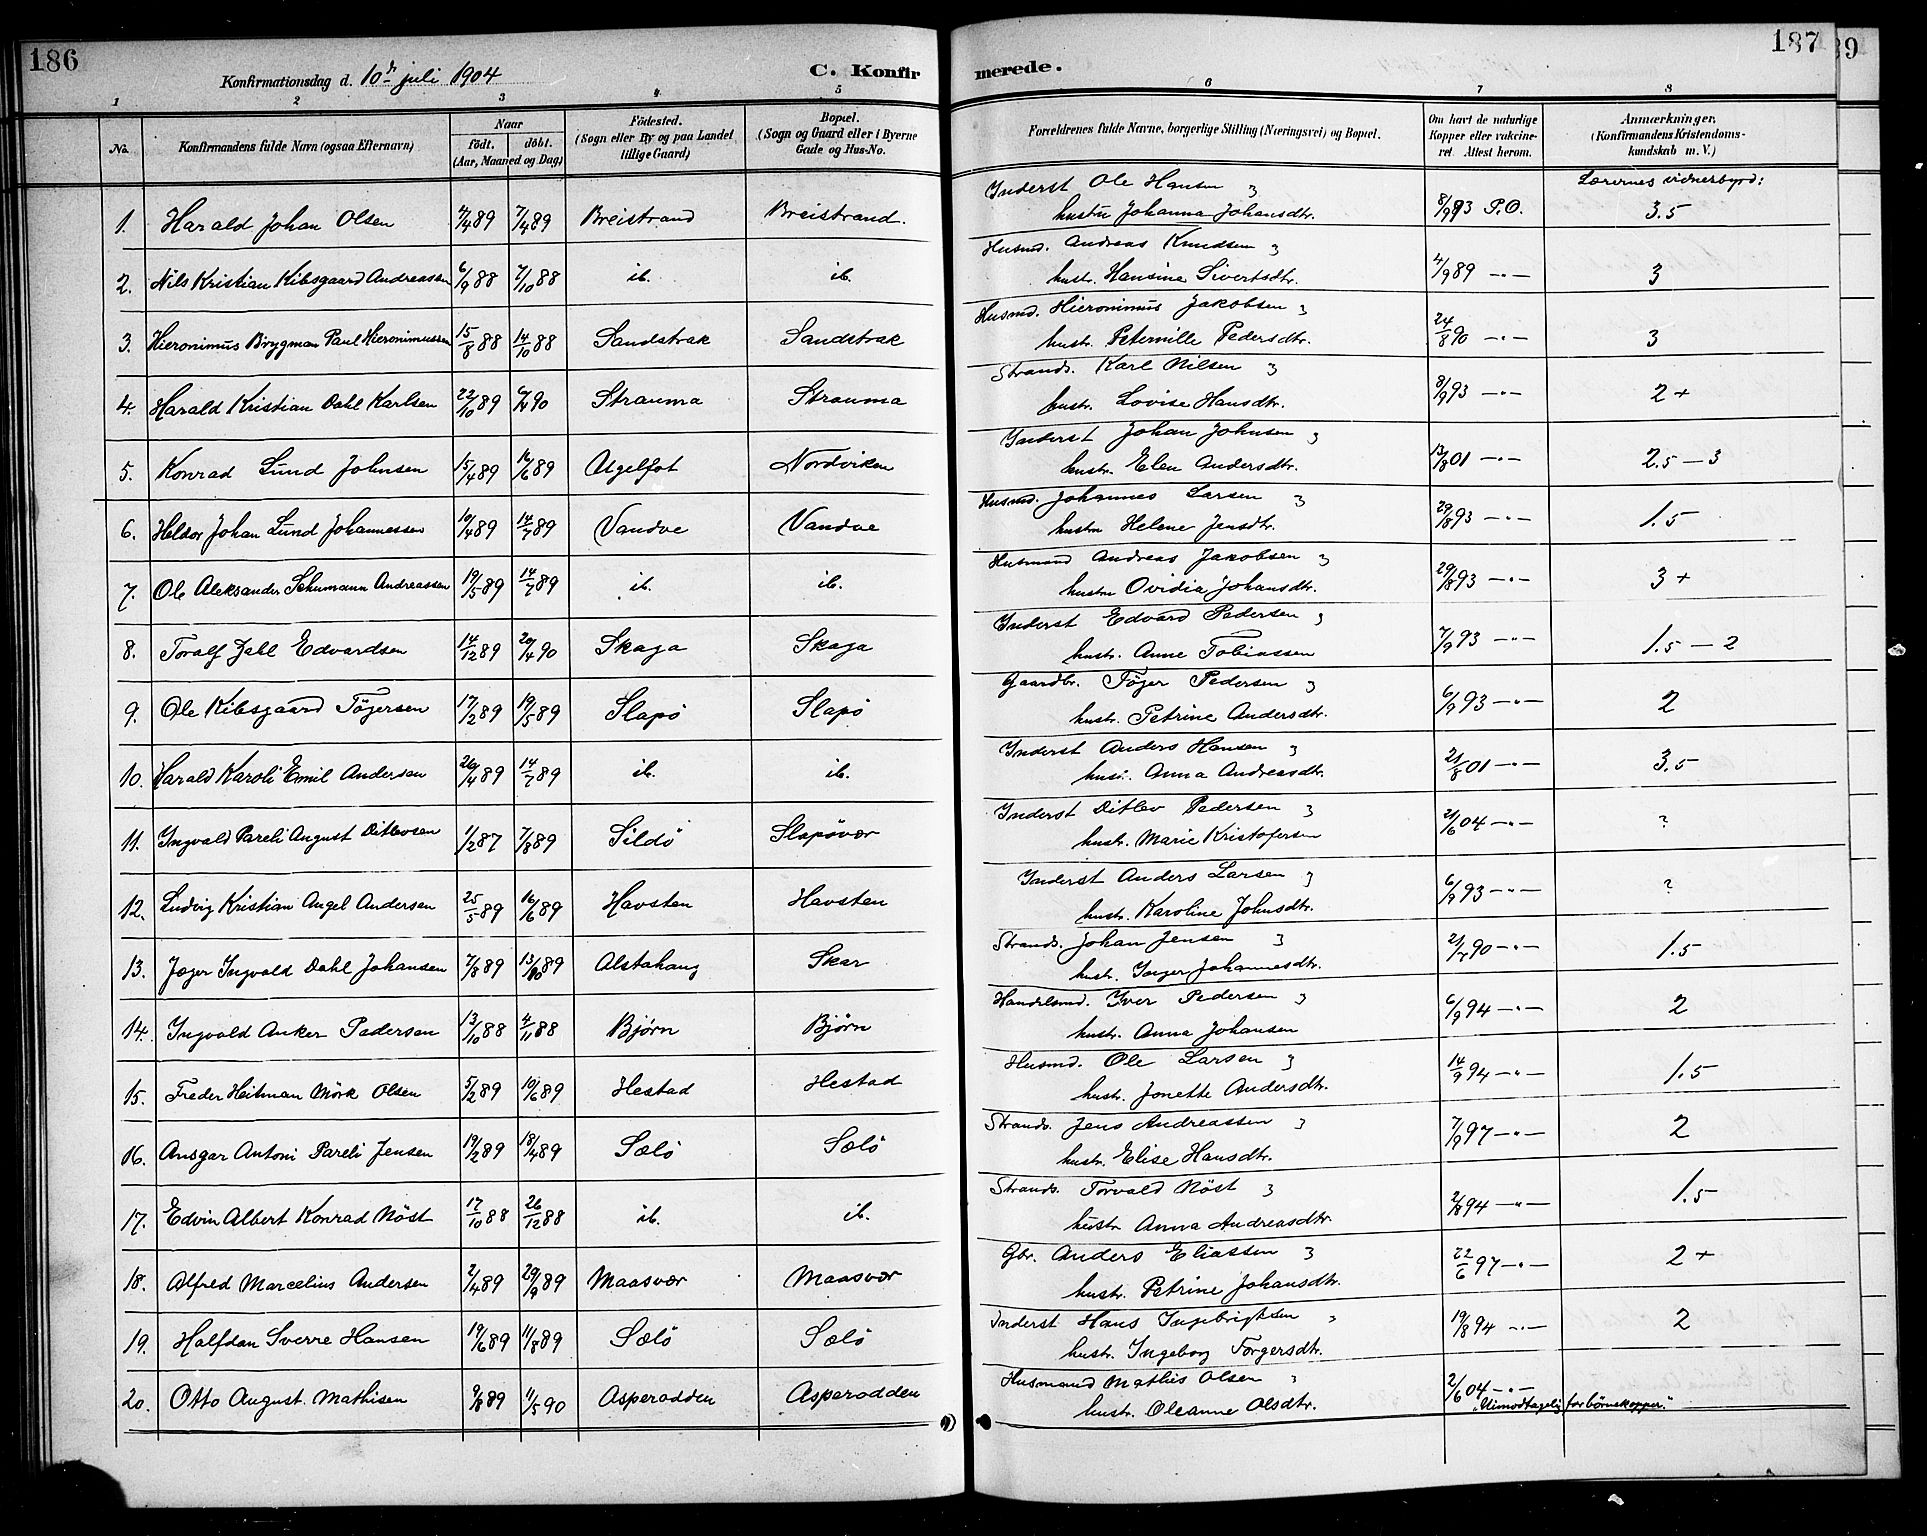 186
187
39
Konfirmationsdag d. 10de juli 1904
C. Konfir
merede.
1 2 3 4 5 6 7 8
No.
Konfirmandens fulde Navn (ogsaa Efternavn)
Naar
født. døbt.
(Aar, Maaned og Dag)
Födested.
(Sogn eller By og paa Landet
tillige Gaard)
Bopæl.
(Sogn og Gaard eller i Byerne
Gade og Hus-No.
Forældrenes fulde Navne, borgerlige Stilling (Næringsvei) og Bopæl.
Om havt de naturlige
Kopper eller vakcine-
ret. Attest herom.
Anmærkninger,
(Konfirmandens Kristendoms-
kundskab m. V.)
Lærernes vidnesbyrd:
Inderst Ole Hansen
1. Harald Johan Olsen 4/4 89 7/4 89 Breistrand Breistrand. hustru Johanna Johansdtr. 8/9 93 P.O. 3.5
Husmd. Andreas Knudsen
2. Nils Kristian Kibsgaard Andreassen 6/9 88 7/10 88 ib. ib. hustr. Hansine Sivertsdtr. 4/9 89 -"- 3
Husmd. Hieronimus Jakobsen
3. Hieronimus Brygman Paul Hieronimussen 15/8 88 14/10 88 Sandstrak Sandstrak hustr. Petermille Pedersdtr. 24/8 90 -"- 3
Strands. Karl Nilsen
4. Harald Kristian Dahl Karlsen 22/10 89 6/4 90 Strauma Strauma hustr. Lovise Hansdtr. 8/9 93 -"- 2+
Inderst Johan Johnsen
5. Konrad Lund Johnsen 15/4 89 16/6 89 Algelfot Nordviken hustr. Elen Andersdtr. 13/8 01 -"- 2.5 - 3
Husmd. Johannes Larsen
6. Heldor Johan Lund Johannessen 10/4 89 14/7 89 Vandve Vandve hustru Helene Jensdtr. 29/8 93 -"- 1.5
Husmand Andreas Jakobsen
7. Ole Aleksander Schumann Andreassen 19/5 89 14/7 89 ib. ib. hustru Ovidia Johansdtr. 29/8 93 -"- 3+
Inderst Edvard Pedersen
8. Toralf Zahl Edvardsen 14/12 89 20/4 90 Skaga Skaga hustr. Anne Tobiassen 7/9 93 -"- 1.5 - 2
Gaardbr. Töger Pedersen
9. Ole Kibsgaard Tögersen 17/2 89 19/5 89 Slapö Slapö hustr. Petrine Andersdtr. 6/9 93 -"- 2
Inderst Anders Hansen
10. Harald Karoli Emil Andersen 26/4 89 14/7 89 ib. ib. hustr. Anna Andreasdtr. 21/8 01 -"- 3.5
Inderst Ditlev Pedersen
11. Ingvald Pareli August Ditlevsen 1/2 87 7/8 89 Sildö Slapövær hustr. Marie Kristofersen 21/6 04 -"- ?
Inderst Anders Larsen
12. Ludvig Kristian Angel Andersen 25/5 89 16/6 89 Havsten Havsten hustr. Karoline Johnsdtr. 6/9 93 -"- ?
Strands. Johan Jensen
13. Jager Ingvald Dahl Johansen 7/8 89 13/10 89 Alstahaug Skar hustr. Inger Johannesdtr. 21/7 90 -"- 1.5
Handelsmd. Iver Pedersen
14. Ingvald Anker Pedersen 13/10 88 4/11 88 Bjørn Bjørn hustr. Anna Johansen 6/9 94 -"- 2
Husmd. Ole Larsen
15. Freder Heitman Mörk Olsen 5/2 89 10/6 89 Hestad Hestad hustr. Jonette Andersdtr. 14/9 94 -"- 1.5
Strands. Jens Andreassen
16. Ansgar Antoni Pareli Jensen 19/2 89 18/4 89 Sælö Sælö hustr. Elise Hansdtr. 7/9 97 -"- 2
Strands. Torvald Nöst
17. Edvin Albert Konrad Nöst 17/10 88 26/12 88 ib. ib. hustr. Anna Andreasdtr. 2/8 94 -"- 1.5
Gbr. Anders Eliassen
18. Alfred Marcelius Andersen 2/4 89 29/9 89 Maasvær Maasvær hustr. Petrine Johansdtr. 22/6 97 -"- 2+
Inderst Hans Ingebrigtsen
19. Halfdan Sverre Hansen 19/6 89 11/8 89 Sælö Sælö hustr. Ingeborg Torgersdtr. 19/8 94 -"- 2
Husmand Mathis Olsen
20. Otto August Mathisen 9/8 89 11/5 90 Asperodden Asperodden hustr. Oleanne Olsdtr. 2/6 04 -"-
"Uimodtagelig for börnekopper."